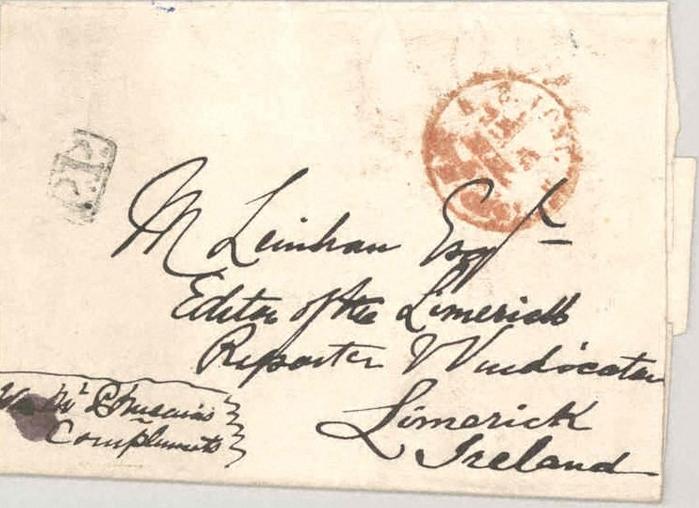 M Leinhan Esqr
Editor of the Limerick
Reporter & Vindicator
Limerick
Ireland
Compliments